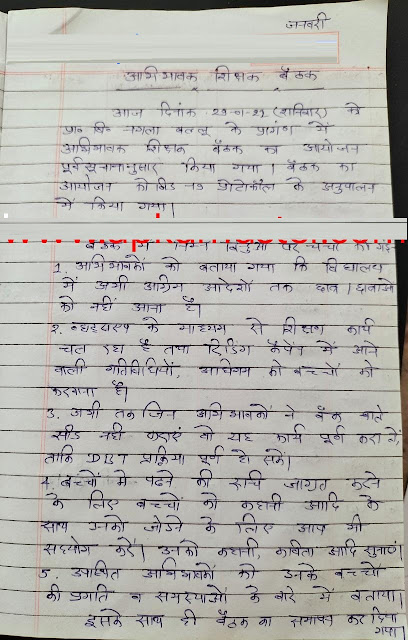 जनवरी
अभिभावक शिक्षक बैठक
आज दिनांक 29-01-22 (शनिवार) को
प्रा० वि० नगला बल्लू के प्रांगण में
अभिभावक शिक्षक बैठक का आयोजन
पूर्वसूचनानुसार किया गया। बैठक का
आयोजन कोविड-19 प्रोटोकॉल के अनुपालन
में किया गया।
बैठक में निम्न बिंदुओं पर चर्चा की गई
1. अभिभावकों को बताया गया कि विद्यालय
में अभी अग्रिम आदेशों तक छात्र/छात्राओं
को नहीं आना है।
2. व्हाट्सएप के माध्यम से शिक्षण कार्य
चल रहा है तथा रीडिंग कैंपेन में आने
वाली गतिविधियों, अधिगम को बच्चों को
करवाना है।
3. अभी तक जिन अभिभावकों ने बैंक खाते
सीड नहीं कराएं वो यह कार्य पूर्ण करा लें,
ताकि DBT प्रक्रिया पूर्ण हो सके।
4. बच्चों में पढ़ने की रुचि जागृत करने
के लिए बच्चों को कहानी आदि के
साथ उनको जोड़ने के लिए आप भी
सहयोग करें। उनको कहानी, कविता आदि सुनाएं।
5. उपस्थित अभिभावकों को उनके बच्चों
की प्रगति व समस्याओं के बारे में बताया।
इसके साथ ही बैठक का समापन कर दिया
गया।